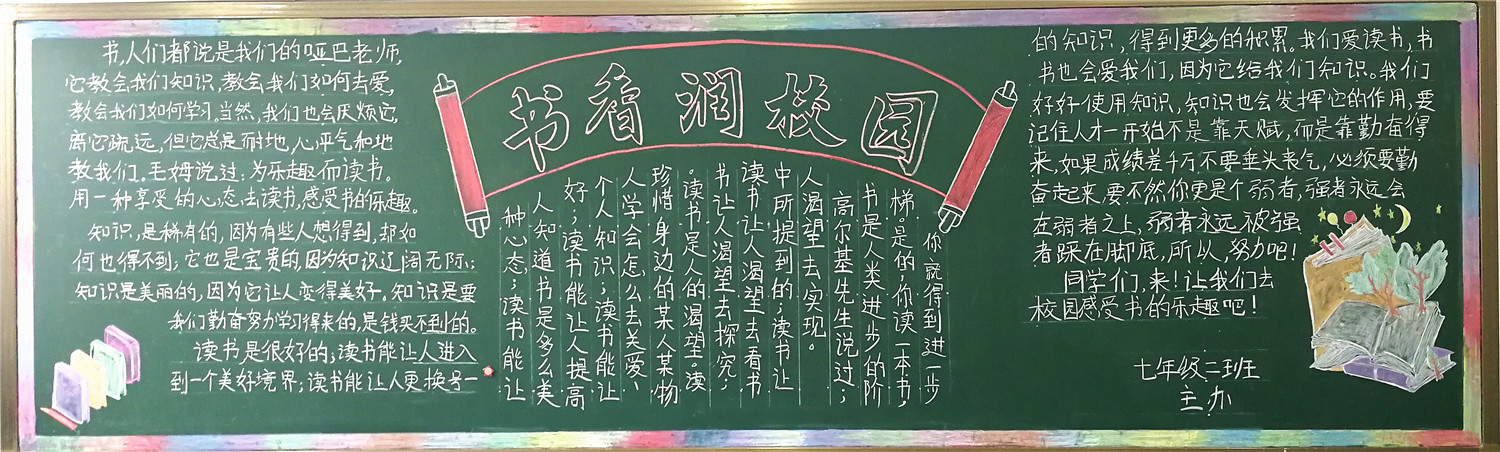 书看润校园
书,人们都说是我们的哑巴老师,
它教会我们知识,教会我们如何去爱,
教会我们如何学习。当然,我们也会厌烦它,
离它疏远,但它总是耐地,心平气和地
教我们。毛姆说过:为乐趣而读书。
用一种享受的心态去读书,感受书的乐趣。
知识,是稀有的,因为有些人想得到,却如
何也得不到;它也是宝贵的,因为知识辽阔无际;
知识是美丽的,因为它让人变得美好。知识是要
我们勤奋努力学习得来的,是钱买不到的。
读书是很好的;读书能让人进入
到一个美好境界;读书能让人更换号一
种心态;读书能让
人知道书是多么美
好;读书能让人提高
个人知识;读书能让
人学会怎么去关爱、
珍惜身边的某人某物
。读书是人的渴望。读
书让人渴望去探究;
读书让人渴望去看书
中所提到的;读书让
人渴望去实现。
高尔基先生说过,
书是人类进步的阶
梯。是的,你读一本书,
你就得到进一步
的知识,得到更多的积累。我们爱读书,书
书也会爱我们,因为它给我们知识。我们
好好使用知识,知识也会发挥它的作用,要
记住人才一开始不是靠天赋,而是靠勤奋得
来,如果成绩差千万不要垂头丧气,必须要勤
奋起来,要不然你更是个弱者,强者永远会
在弱者之上,弱者永远被强
者踩在脚底,所以,努力吧!
同学们,来!让我们去
校园感受书的乐趣吧!
七年级二班
主办